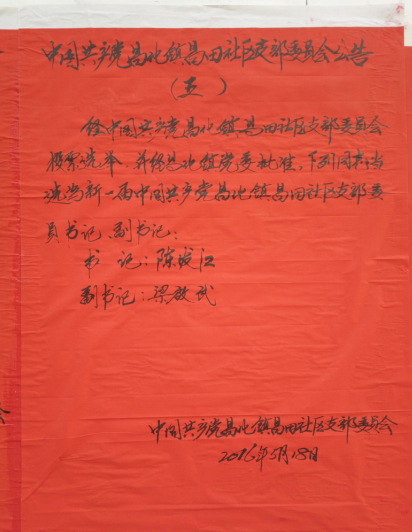 中国共产党昌北镇昌田社区支部委员会公告
（五）
经中国共产党昌北镇昌田社区支部委员会
投票选举，并经昌北镇党委批准，下列同志当
选为新一届中国共产党昌北镇昌田社区支部委
员书记、副书记：
书 记：陈发江
副书记：梁放武
中国共产党昌北镇昌田社区支部委员会
2016年5月18日